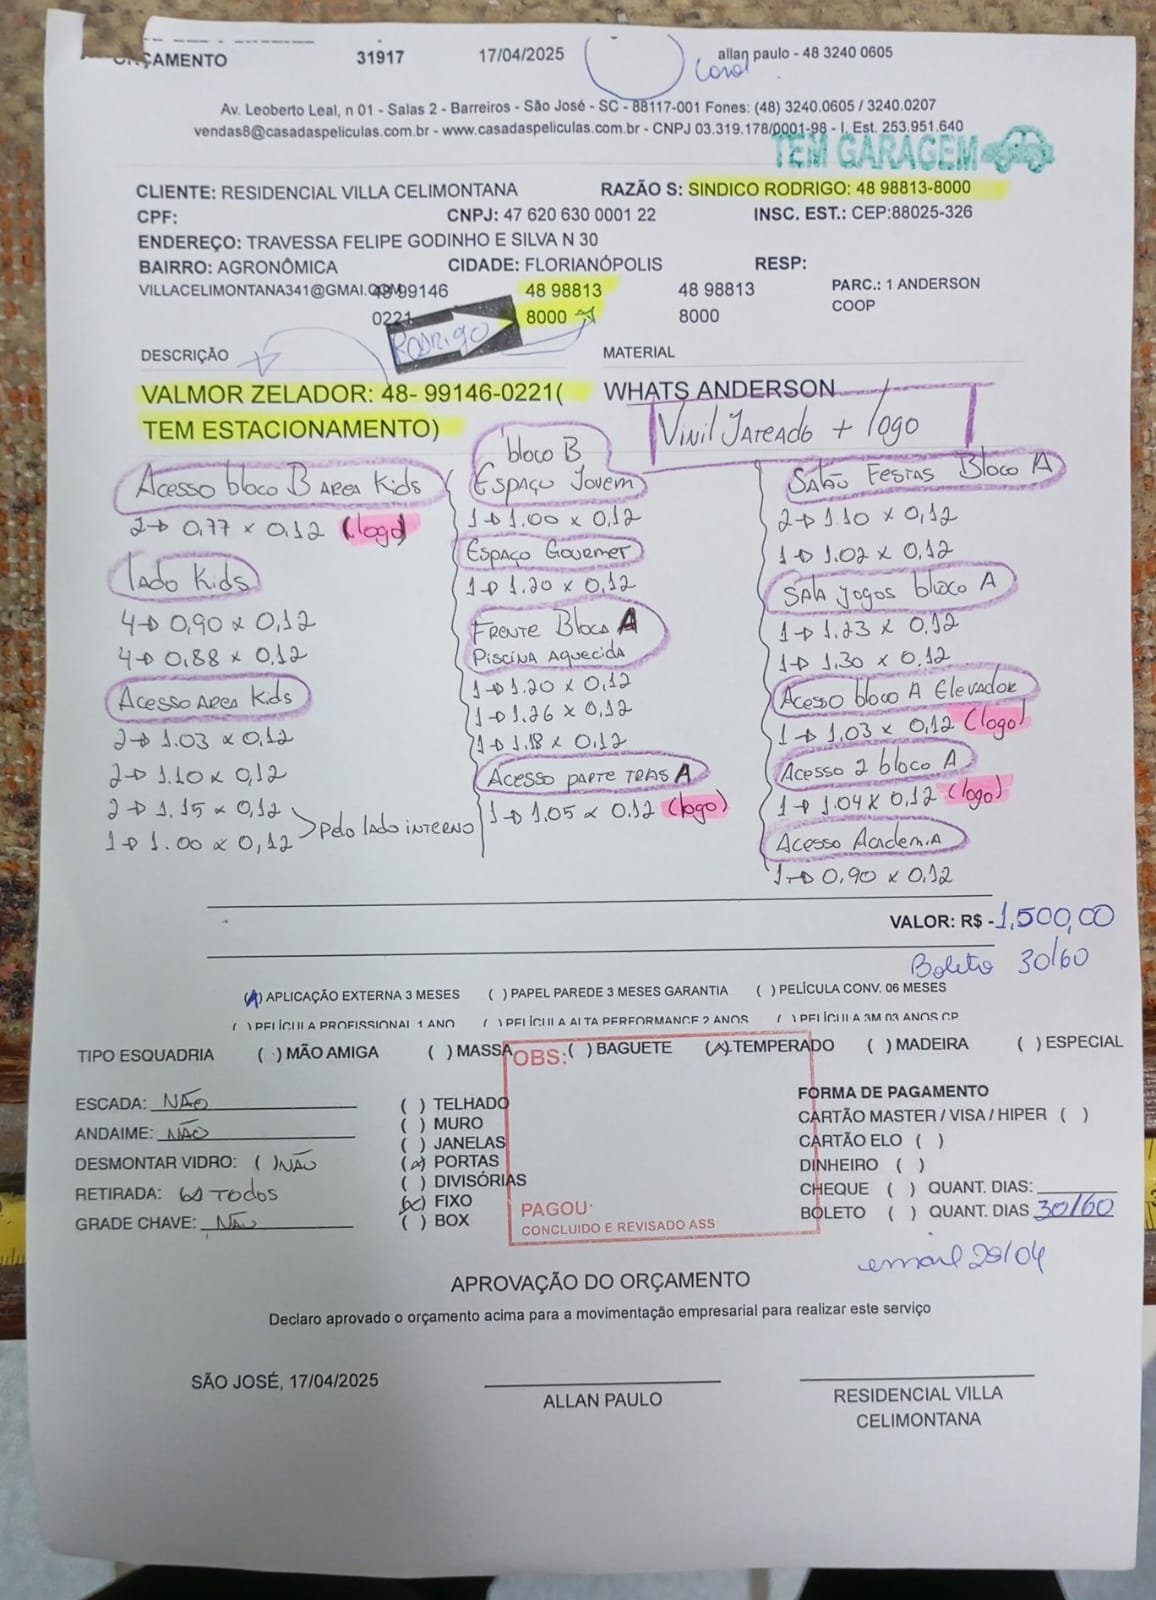 ORÇAMENTO 31917 17/04/2025 allan paulo - 48 3240 0605
Av. Leoberto Leal, n 01 - Salas 2 - Barreiros - São José - SC - 88117-001 Fones: (48) 3240.0605 / 3240.0207
vendas8@casadaspeliculas.com.br - www.casadaspeliculas.com.br - CNPJ 03.319.178/0001-98 - I. Est. 253.951.640
TEM GARAGEM
CLIENTE: RESIDENCIAL VILLA CELIMONTANA RAZÃO S: SINDICO RODRIGO: 48 98813-8000
CPF: CNPJ: 47 620 630 0001 22 INSC. EST.: CEP:88025-326
ENDEREÇO: TRAVESSA FELIPE GODINHO E SILVA N 30
BAIRRO: AGRONÔMICA CIDADE: FLORIANÓPOLIS RESP:
VILLACELIMONTANA341@GMAI.COM 48 99146 48 98813 48 98813 PARC.: 1 ANDERSON
0221 8000 8000 COOP
RODRIGO
DESCRIÇÃO MATERIAL
VALMOR ZELADOR: 48- 99146-0221( WHATS ANDERSON
TEM ESTACIONAMENTO)
Vinil Jateado + logo
Acesso bloco B Area Kids
2→ 0,77 x 0,12 (logo)
lado Kids
4→ 0,90 x 0,12
4→ 0,88 x 0,12
Acesso Area Kids
2→ 1.03 x 0,12
2→ 1.10 x 0,12
2→ 1.15 x 0,12
1→ 1.00 x 0,12
pelo lado interno
bloco B
Espaço Jovem
1→ 1.00 x 0,12
Espaço Gourmet
1→ 1.20 x 0,12
Frente Bloco A
Piscina Aquecida
1→ 1.20 x 0,12
1→ 1.26 x 0,12
1→ 1.18 x 0,12
Acesso parte tras A
1→ 1.05 x 0.12 (logo)
Salão Festas Bloco A
2→ 1.10 x 0,12
1→ 1.02 x 0,12
Sala Jogos bloco A
1→ 1.23 x 0.12
1→ 1.30 x 0.12
Acesso bloco A Elevador
1→ 1.03 x 0,12 (logo)
Acesso 2 bloco A
1→ 1.04 x 0,12 (logo)
Acesso Academia
1→ 0,90 x 0,12
VALOR: R$ -1,500,00
Boleto 30/60
(X) APLICAÇÃO EXTERNA 3 MESES ( ) PAPEL PAREDE 3 MESES GARANTIA ( ) PELÍCULA CONV. 06 MESES
( ) PELÍCULA PROFISSIONAL 1 ANO ( ) PELÍCULA ALTA PERFORMANCE 2 ANOS ( ) PELÍCULA 3M 03 ANOS CP
TIPO ESQUADRIA ( ) MÃO AMIGA ( ) MASSA ( ) BAGUETE (X) TEMPERADO ( ) MADEIRA ( ) ESPECIAL
OBS:
ESCADA: NÃO
ANDAIME: NÃO
DESMONTAR VIDRO: ( ) NÃO
RETIRADA: (X) TODOS
GRADE CHAVE: NÃO
( ) TELHADO
( ) MURO
( ) JANELAS
(X) PORTAS
( ) DIVISÓRIAS
(X) FIXO
( ) BOX
PAGOU:
CONCLUIDO E REVISADO ASS
FORMA DE PAGAMENTO
CARTÃO MASTER / VISA / HIPER ( )
CARTÃO ELO ( )
DINHEIRO ( )
CHEQUE ( ) QUANT. DIAS:
BOLETO ( ) QUANT. DIAS 30/60
email 29/04
APROVAÇÃO DO ORÇAMENTO
Declaro aprovado o orçamento acima para a movimentação empresarial para realizar este serviço
SÃO JOSÉ, 17/04/2025
ALLAN PAULO
RESIDENCIAL VILLA
CELIMONTANA